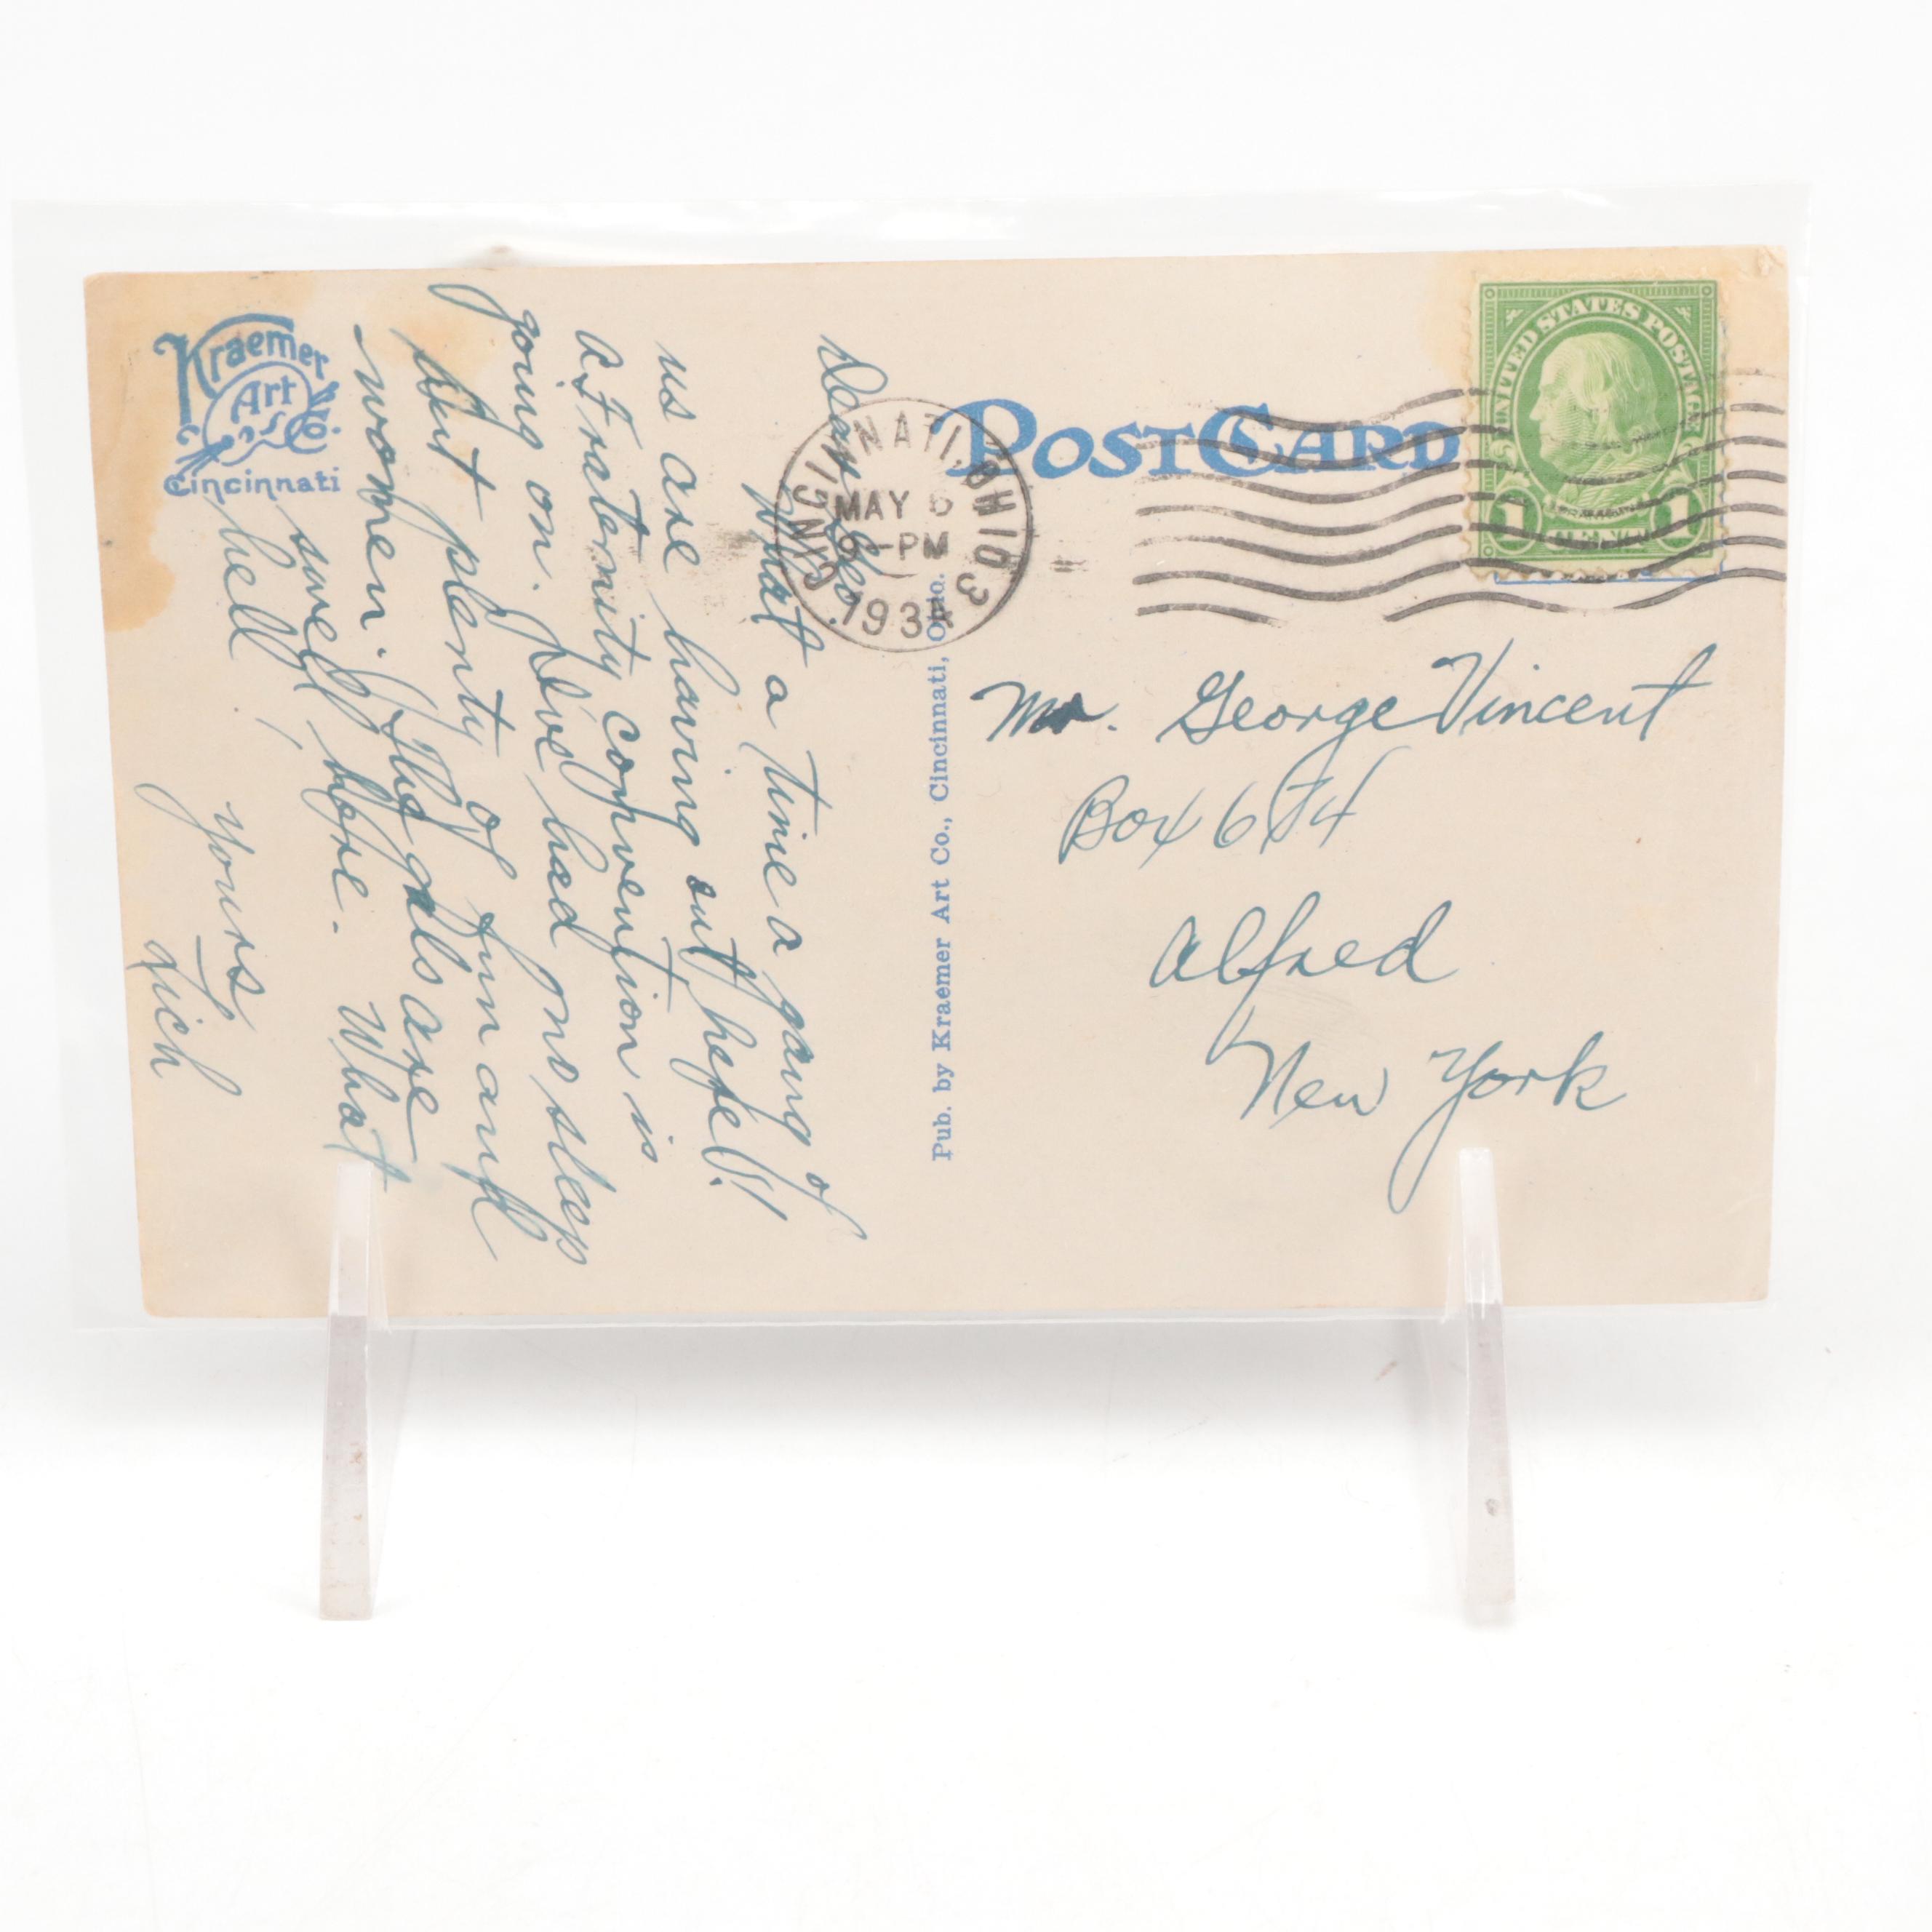 Kraemer
Art
Co.
Cincinnati
Dear Geo.
What a time a gang of
us are having out here!!
A Fraternity convention is
going on. I've had no sleep
but plenty of fun and
women. The gals are
swell here. What
hell!
Yours,
Rich
Pub. by Kraemer Art Co., Cincinnati, Ohio.
POSTCARD
CINCINNATI, OHIO 3
MAY 6
9-PM
1934
UNITED STATES POSTAGE
FRANKLIN
1 CENT 1
Mr. George Vincent
Box 674
Alfred
New York